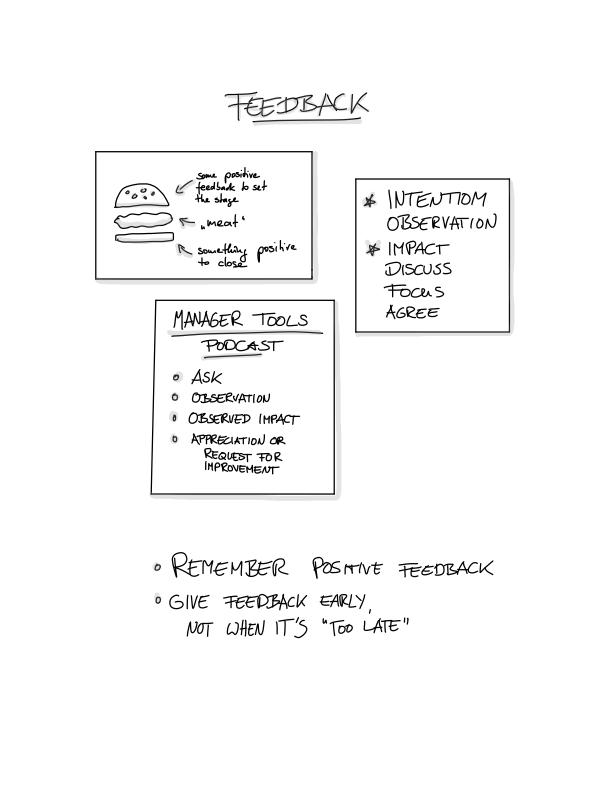 FEEDBACK
some positive
feedback to set
the stage
„meat"
something positive
to close
INTENTIOM
OBSERVATION
IMPACT
DISCUSS
FOCUS
AGREE
MANAGER TOOLS
PODCAST
ASK
OBSERVATION
OBSERVED IMPACT
APPRECIATION OR
REQUEST FOR
IMPROVEMENT
REMEMBER POSITIVE FEEDBACK
GIVE FEEDBACK EARLY,
NOT WHEN IT'S "TOO LATE"